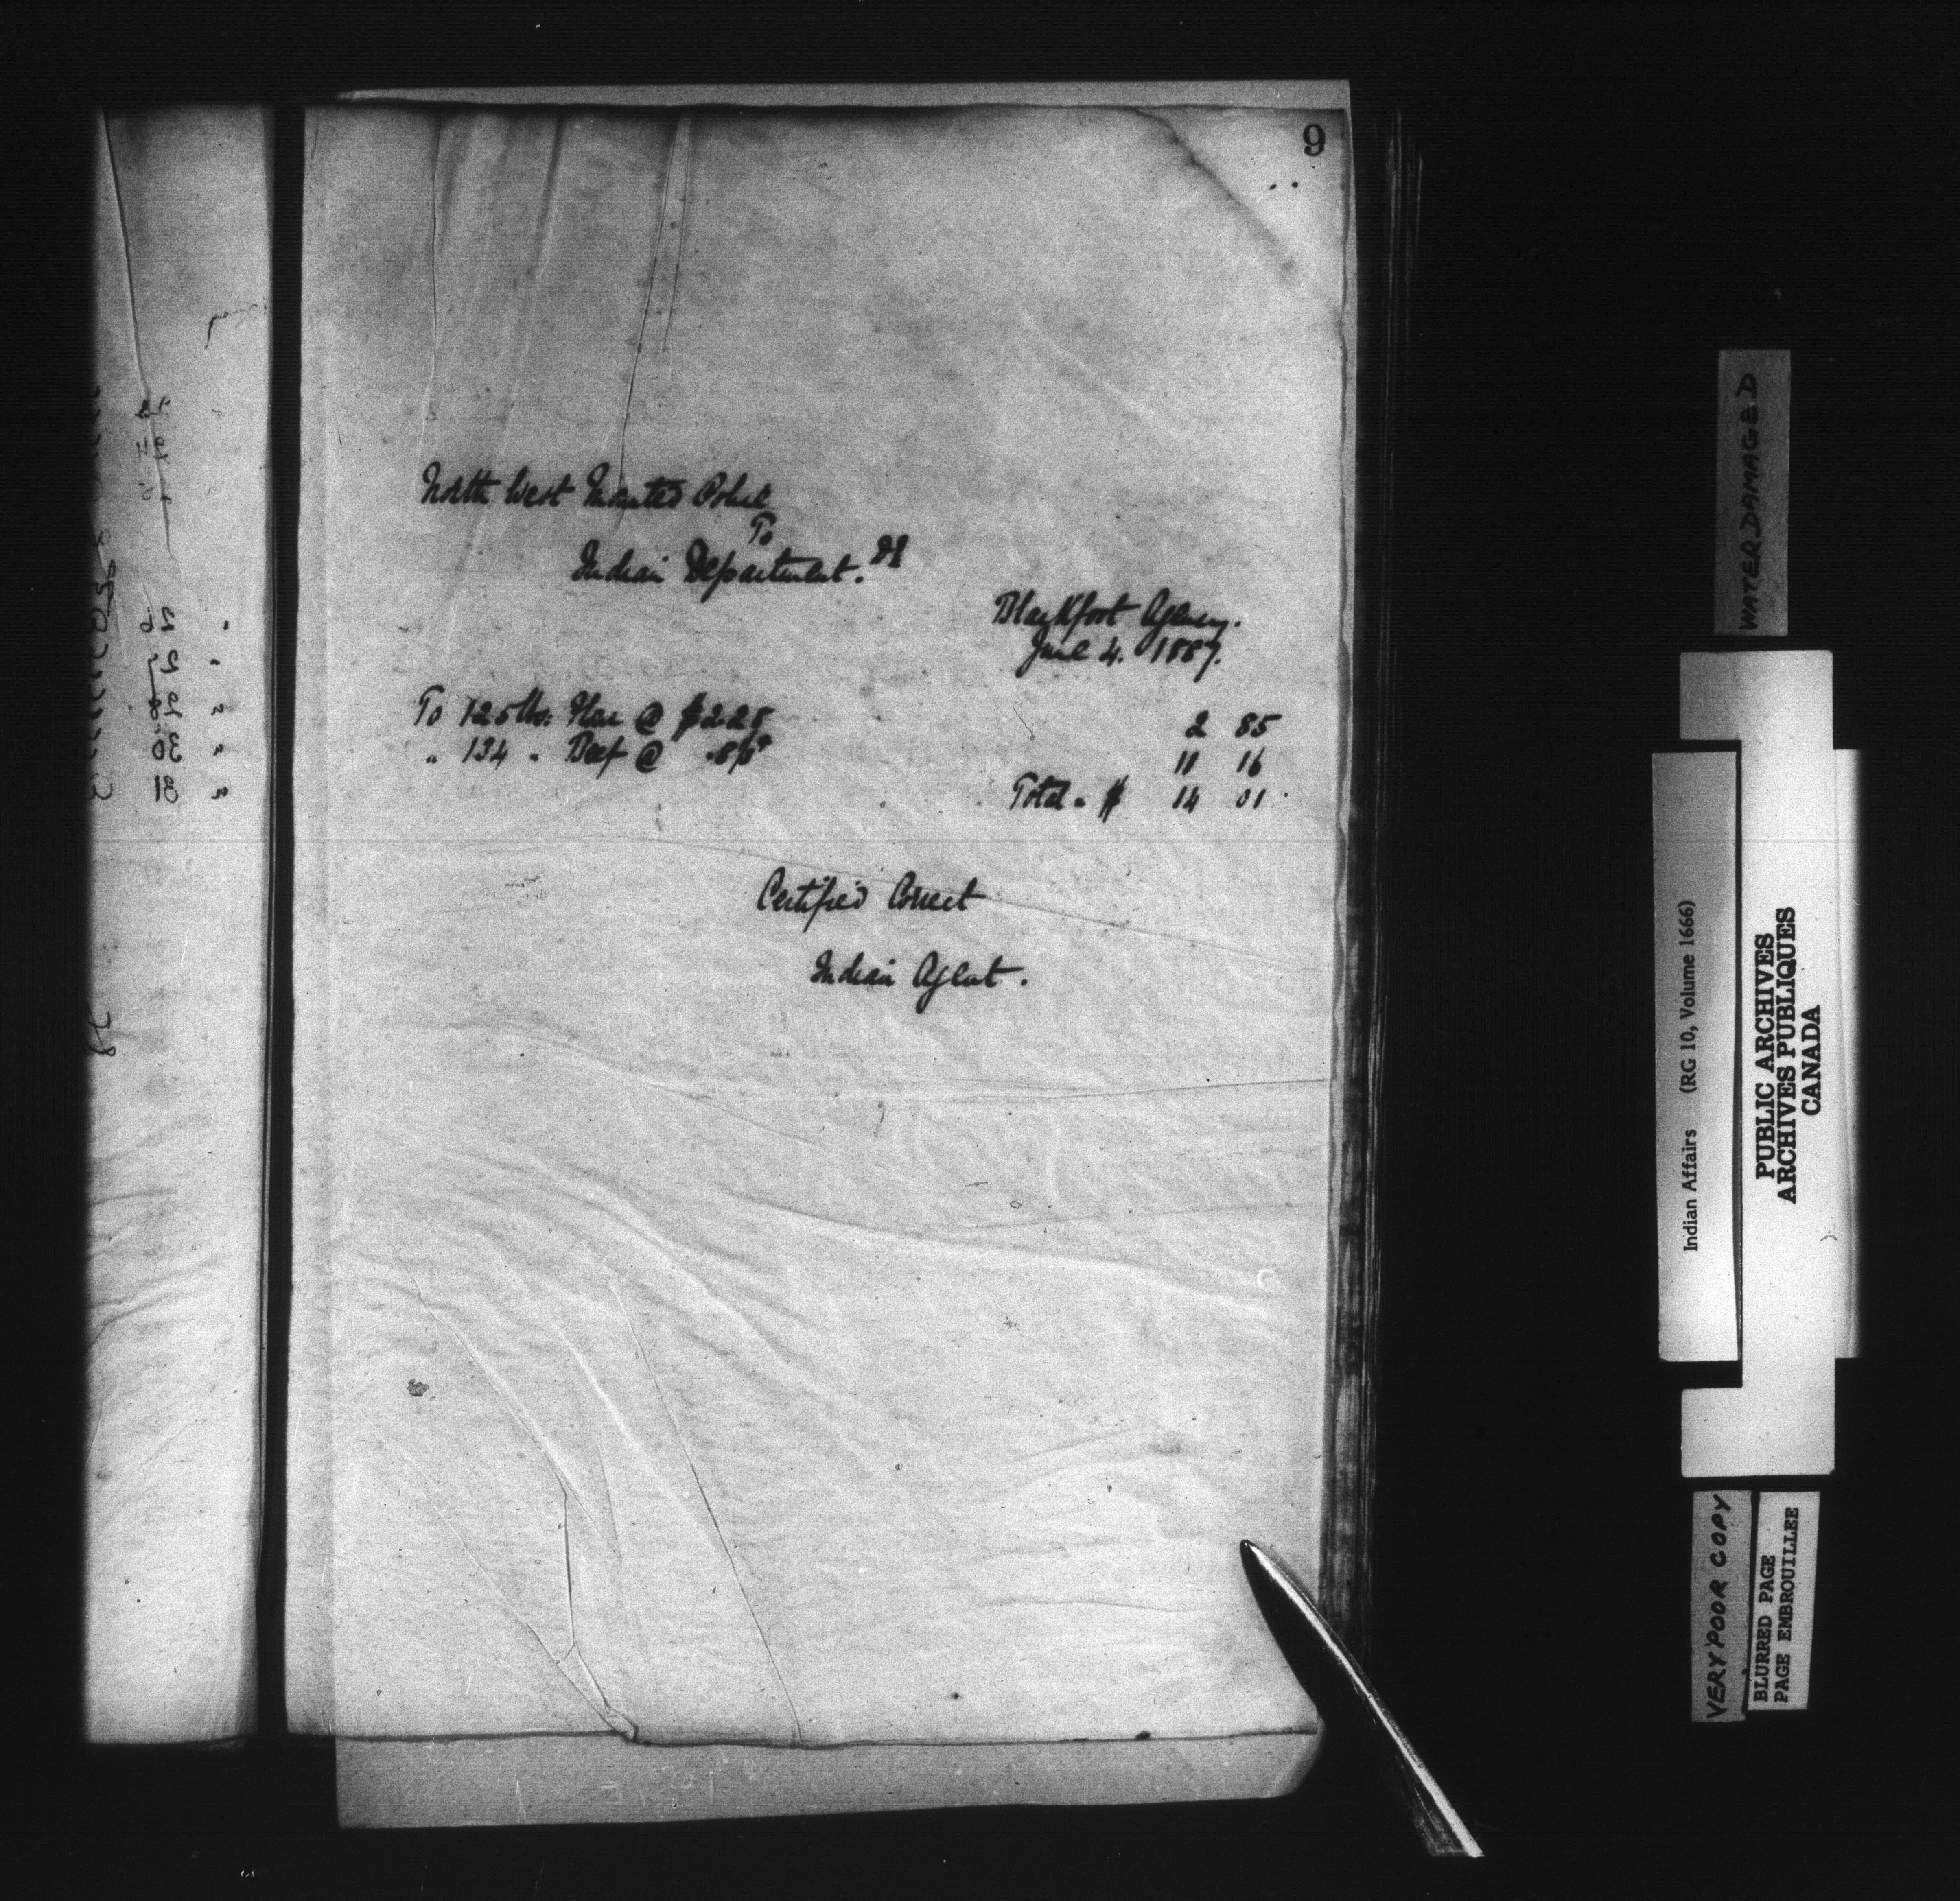 9
North West Mounted Police
To
Indian Department. Dr
Blackfoot Agency.
June 4. 1887.
To 125 lbs: Flour @ $2.28 2 85
" 134 " Beef @ .8⅓ 11 16
Total " $ 14 01
Certified Correct
Indian Agent.
WATER DAMAGED
Indian Affairs (RG 10, Volume 1666)
PUBLIC ARCHIVES
ARCHIVES PUBLIQUES
CANADA
VERY POOR COPY
BLURRED PAGE
PAGE EMBROUILLEE